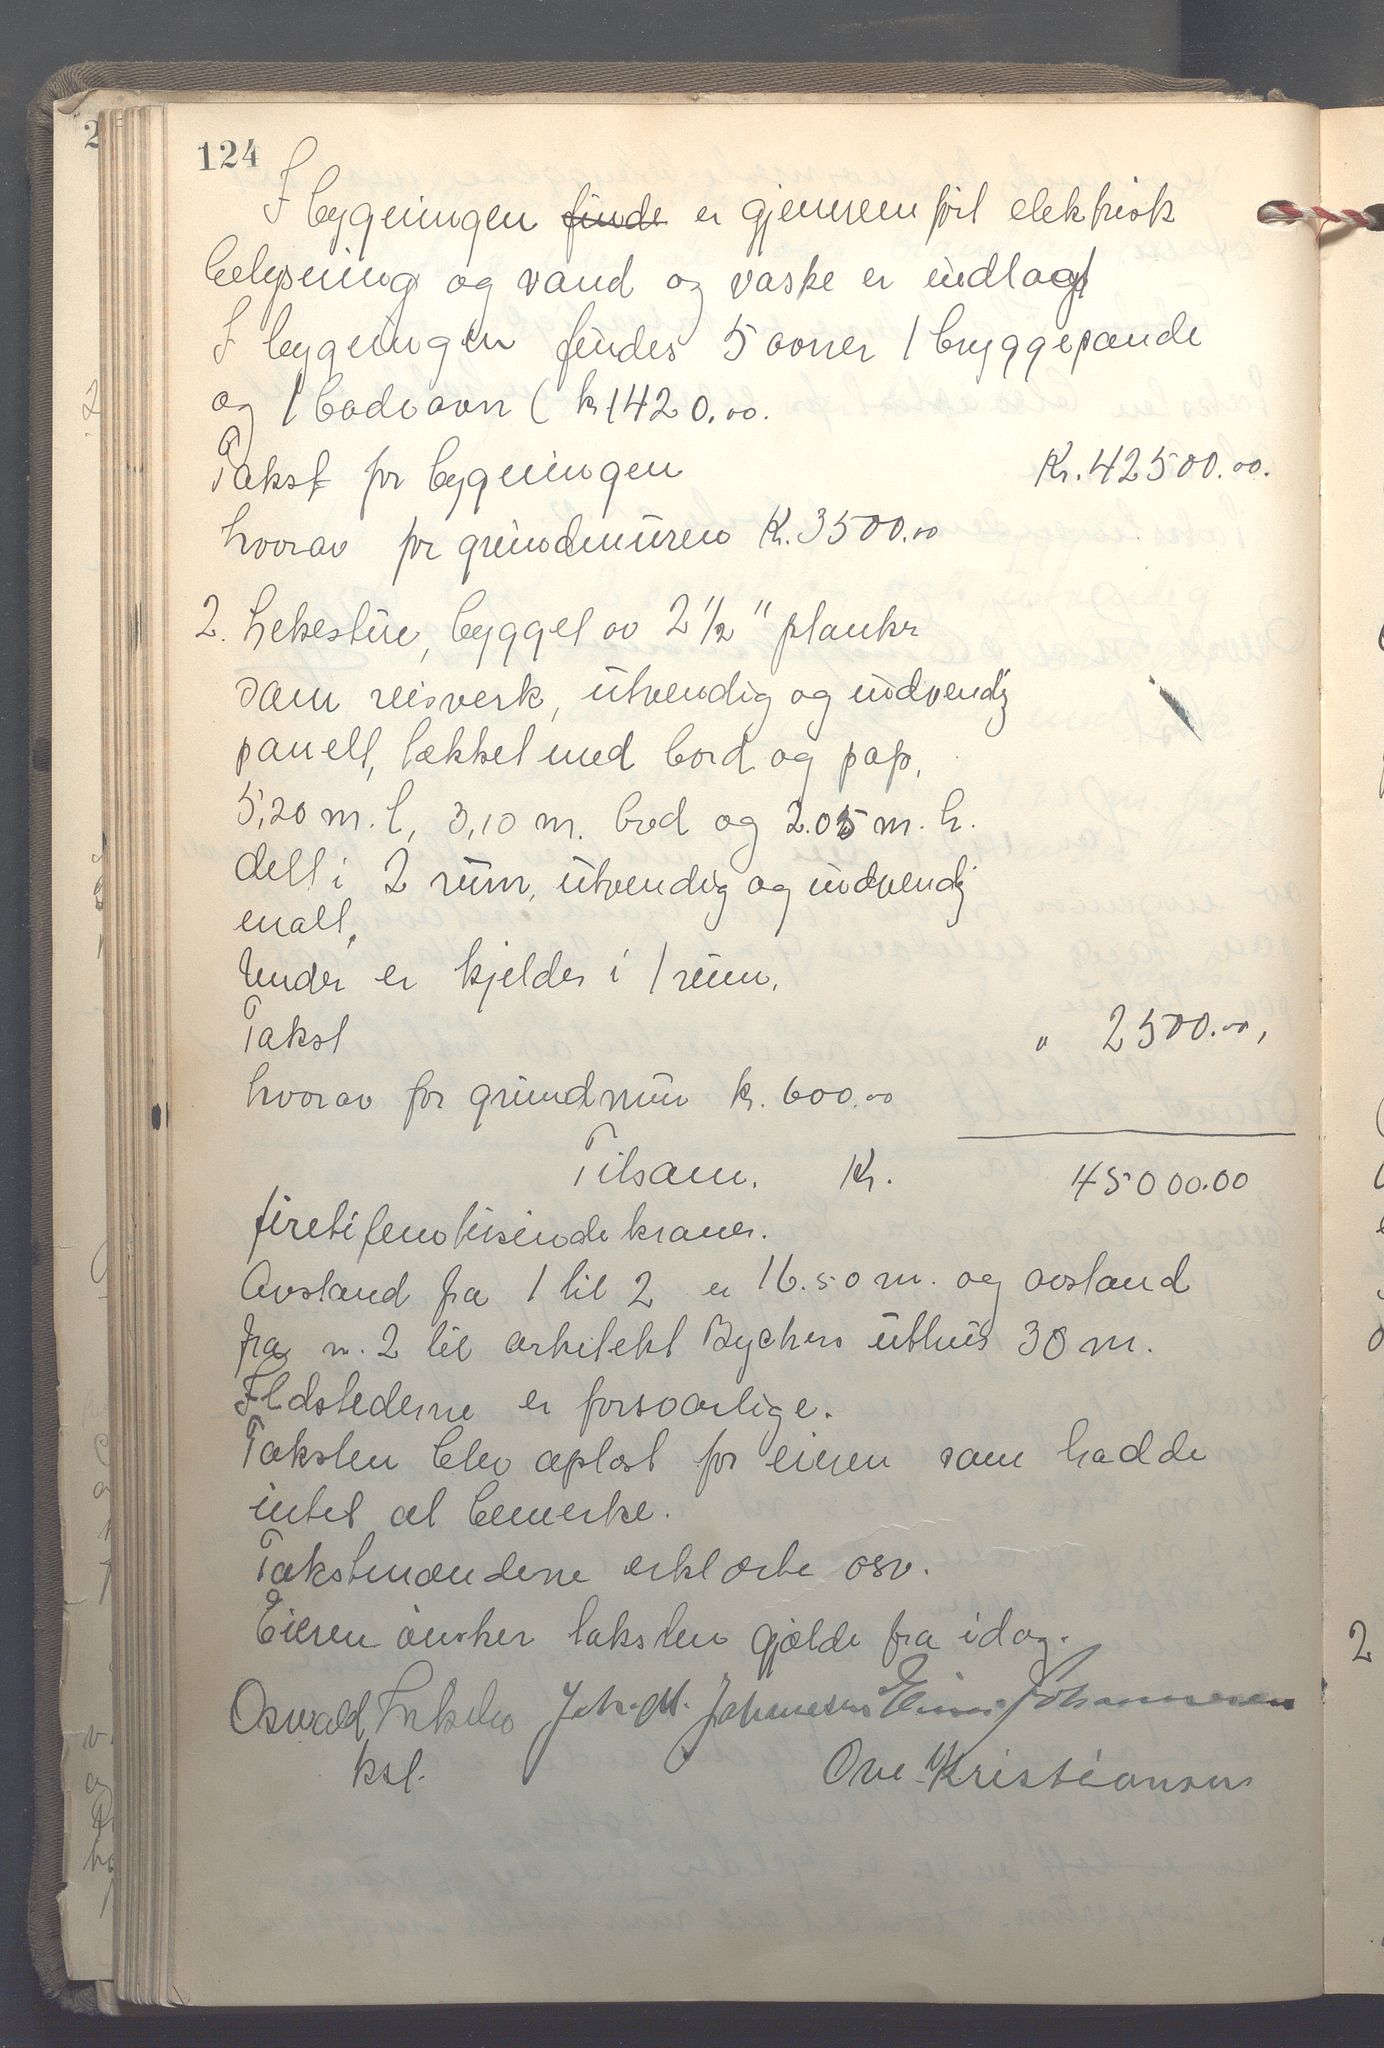 124
I bygningen finde er gjennemført elektrisk
belysning og vand og vaske er indlagt
I bygningen findes 5 ovner 1 bryggepande
og 1 badeovn ( kr 1420.00.
Takst for bygningen Kr. 42500.00.
hvorav for grundmuren Kr. 3500.00
2. Lekestue, bygget av 2 1/2" planker
som reisverk, utvendig og indvendig
panelt, tækket med bord og pap,
5,20 m. l, 3,10 m. bred og 2.05 m. h.
delt i 2 rum, utvendig og indvendig
malt.
Under er kjelder i 1 rum.
Takst " 2500.00,
hvorav for grundmur kr. 600.00
Tilsam. Kr. 45000.00
firetifemtusinde kroner.
Avstand fra 1 til 2 er 16.50 m. og avstand
fra n. 2 til arkitekt Bychers uthus 30 m.
Ildstederne er forsvarlige.
Taksten blev oplæst for eieren som hadde
intet at bemerke.
Takstmændene erklærte osv.
Eieren ønsker taksten gjælde fra idag.
Oswald Joh. M. Johannesen Einar Johannesen
kst. Ove Kristiansen
2